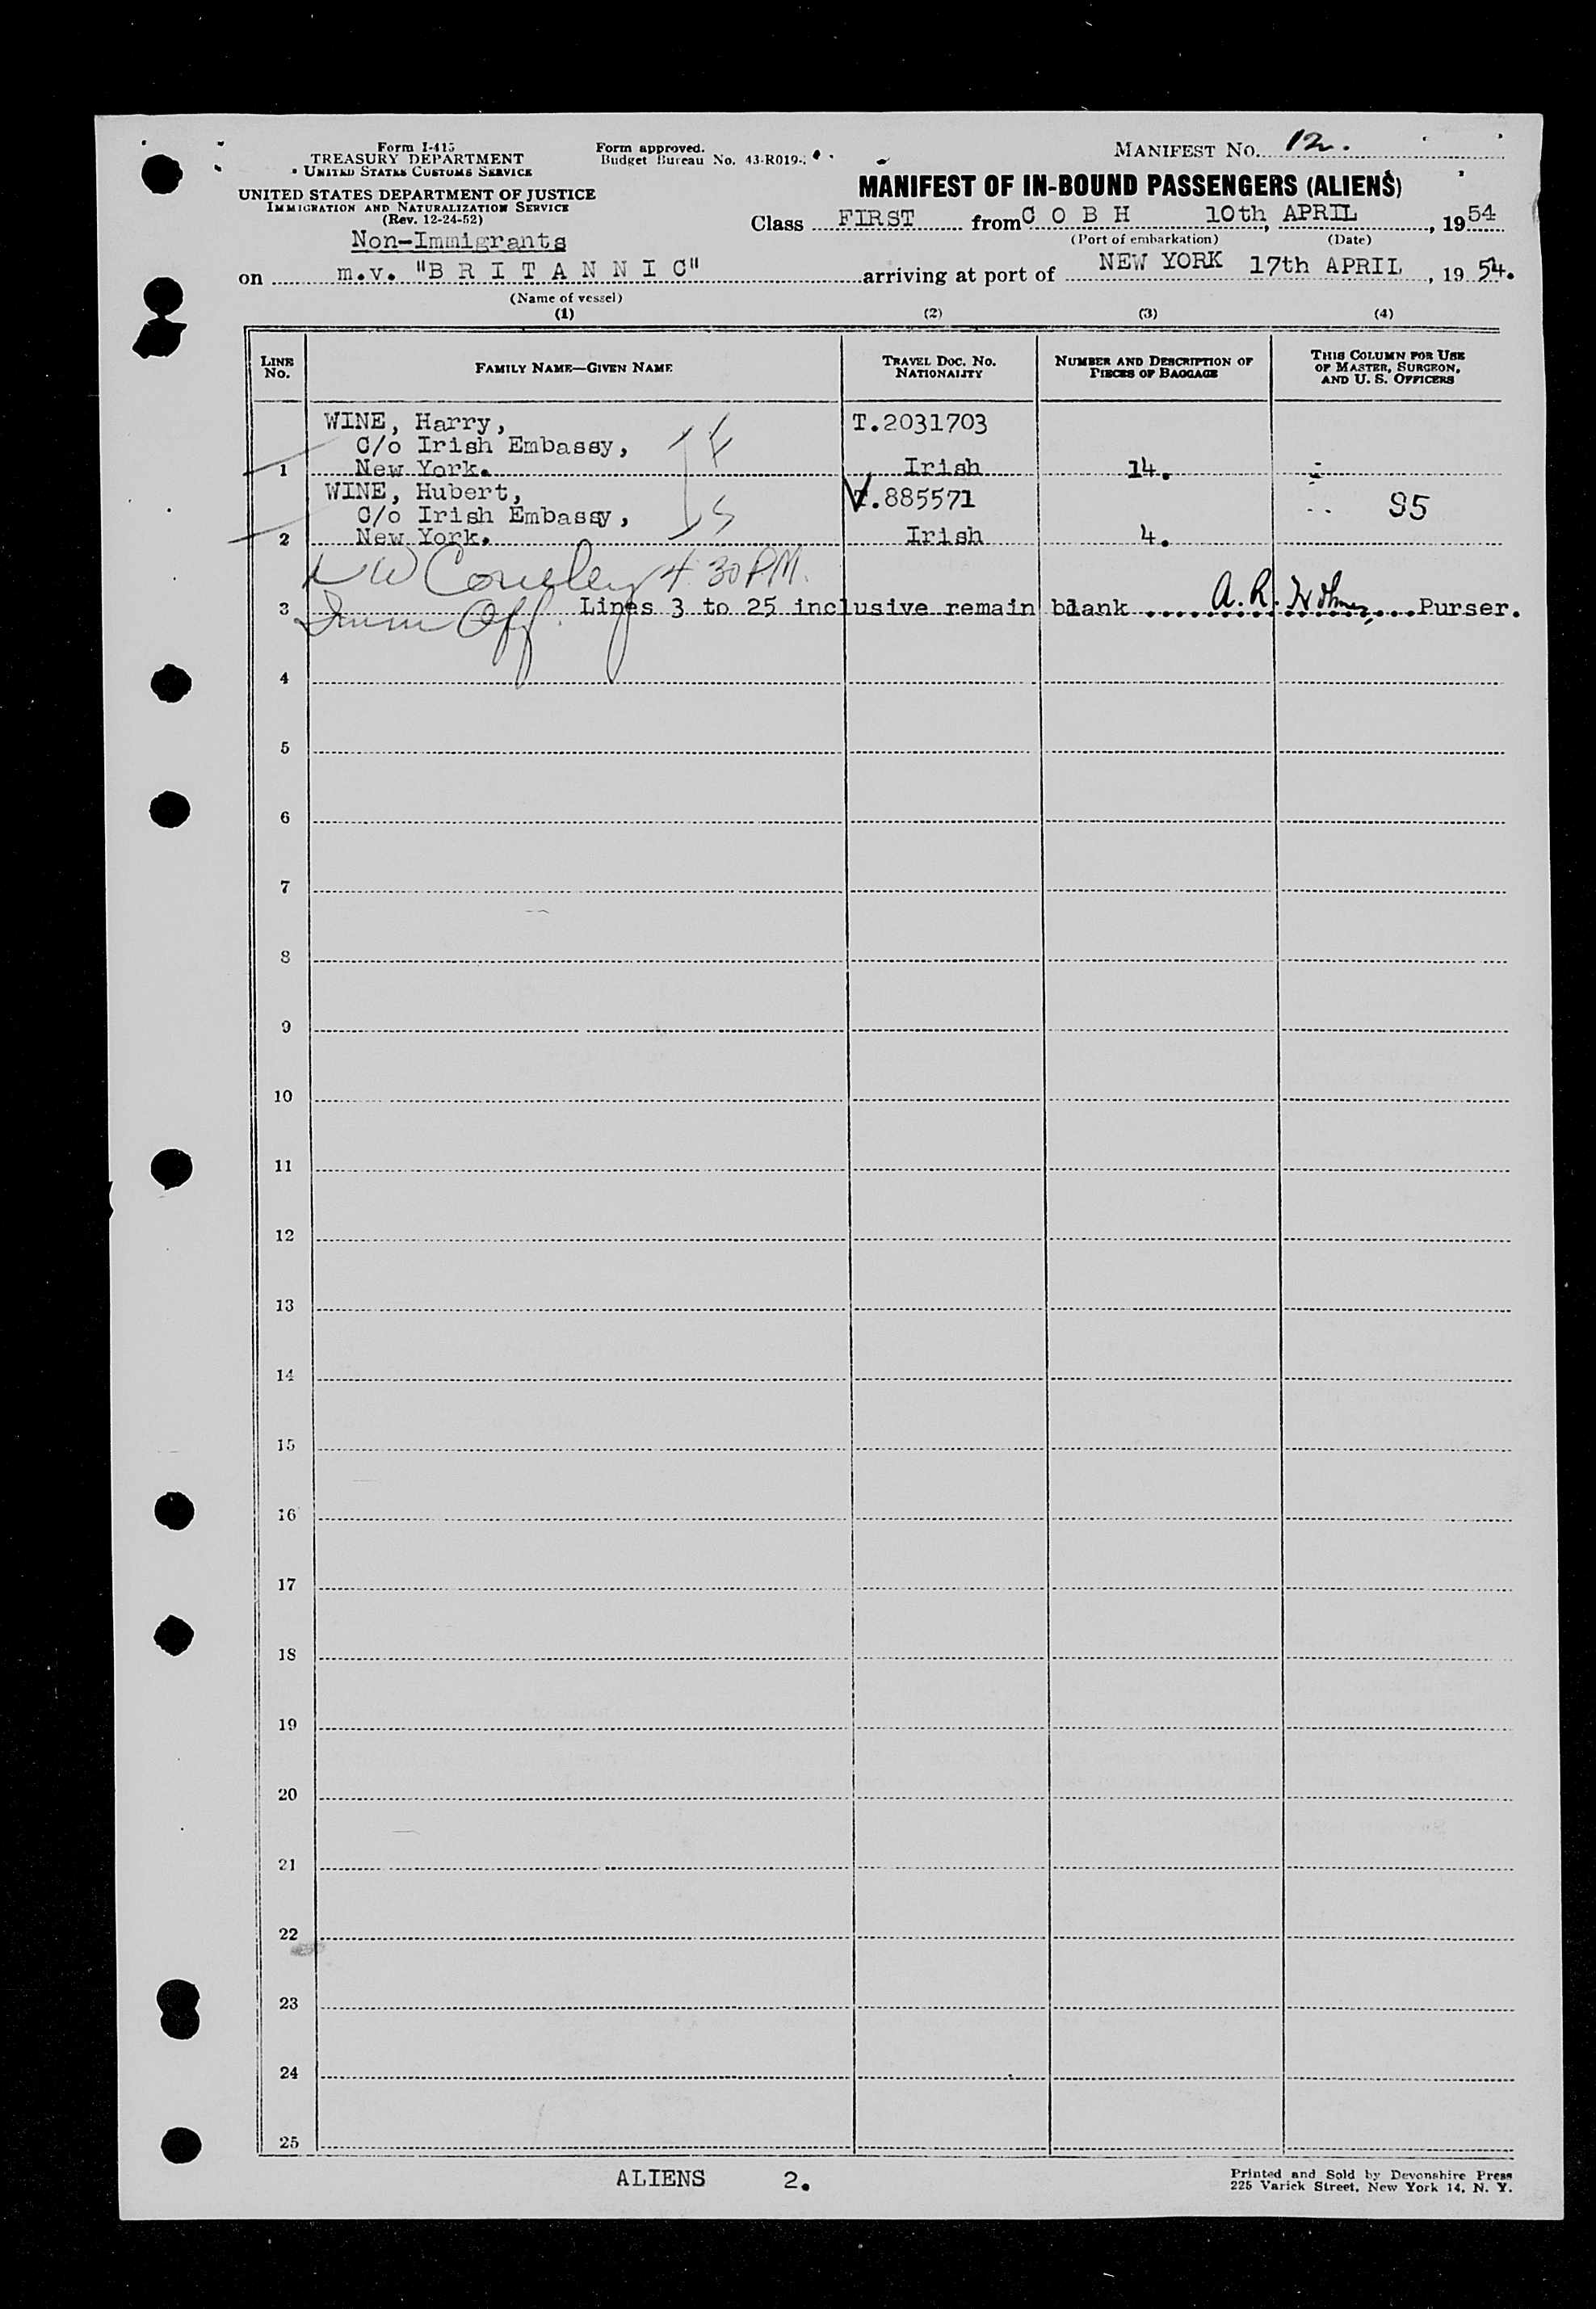 Form I-415
TREASURY DEPARTMENT
UNITED STATES CUSTOMS SERVICE
UNITED STATES DEPARTMENT OF JUSTICE
IMMIGRATION AND NATURALIZATION SERVICE
(Rev. 12-24-52)
Form approved.
Budget Bureau No. 43-R019-
MANIFEST NO. 12.
MANIFEST OF IN-BOUND PASSENGERS (ALIENS)
Non-Immigrants
Class FIRST from C O B H 10th APRIL, 1954
(Port of embarkation) (Date)
on m.v. "B R I T A N N I C" arriving at port of NEW YORK 17th APRIL, 19 54.
(Name of vessel)
(1) (2) (3) (4)
LINE NO.
FAMILY NAME—GIVEN NAME
TRAVEL DOC. NO.
NATIONALITY
NUMBER AND DESCRIPTION OF
PIECES OF BAGGAGE
THIS COLUMN FOR USE
OF MASTER, SURGEON,
AND U. S. OFFICERS
WINE, Harry, T.2031703
C/o Irish Embassy,
1 New York. Irish 14. -
WINE, Hubert, T.885571
C/o Irish Embassy, 95
2 New York. Irish 4.
4 30 PM.
3 Lines 3 to 25 inclusive remain blank A. R. Purser.
Imm Off.
4
5
6
7
8
9
10
11
12
13
14
15
16
17
18
19
20
21
22
23
24
25
ALIENS 2.
Printed and Sold by Devonshire Press
225 Varick Street, New York 14, N. Y.